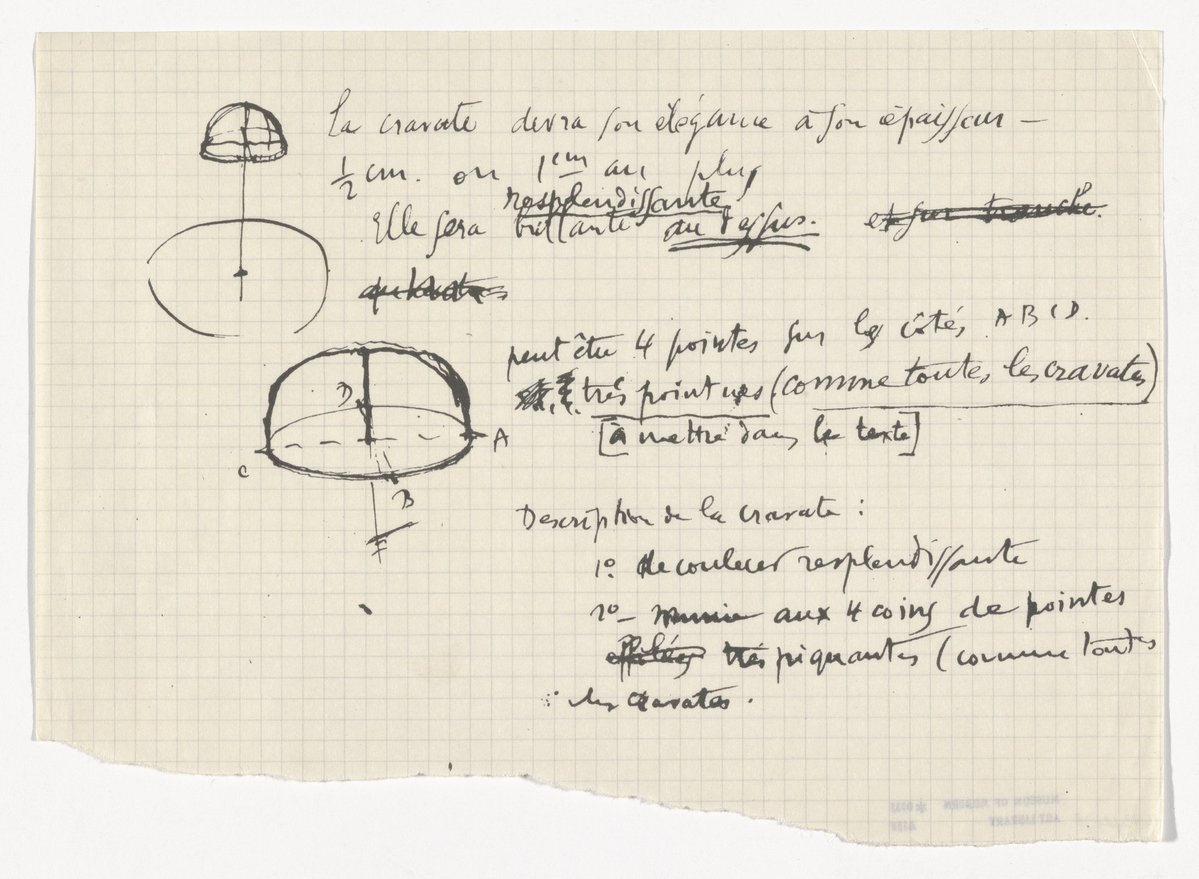 La cravate devra son élégance à son épaisseur –
½ cm. ou 1 cm au plus
resplendissante
Elle sera brillante au dessus. et sur tranche.
peut être 4 pointes sur les côtés A B C D.
très pointues (comme toutes les cravates)
[à mettre dans le texte]
D
A
C
B
E
Description de la cravate :
1º. de couleur resplendissante
2º – munie aux 4 coins de pointes
effilées très piquantes (comme toutes
les cravates.
MUSEUM OF MODERN
ART LIBRARY